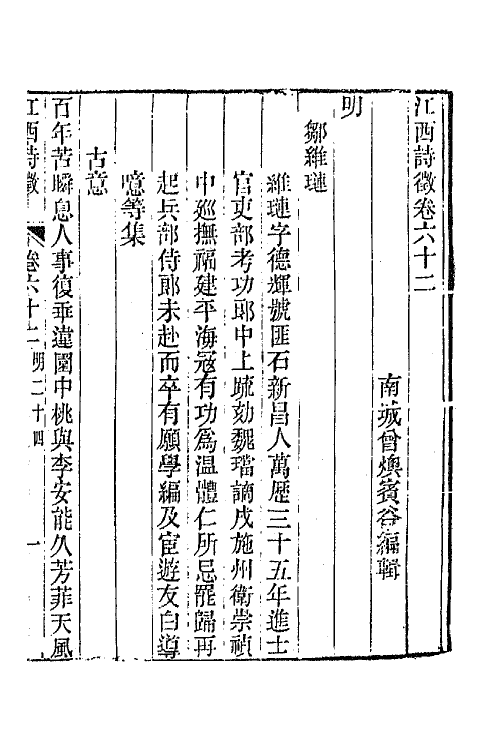 江西詩徵卷六十二
南城曾燠賓谷編輯
明
鄒維璉
維璉字德輝號匪石新昌人萬歷三十五年進士
官吏部考功郎中上疏劾魏璫謫戌施州衛崇禎
中廵撫福建平海寇有功爲温體仁所忌罷歸再
起兵部侍郎未赴而卒有願學編及宦遊友白導
噫等集
古意
百年苦瞬息人事復乖違園中桃與李安能久芳菲天風
江西詩徵 卷六十二 明二十四 一